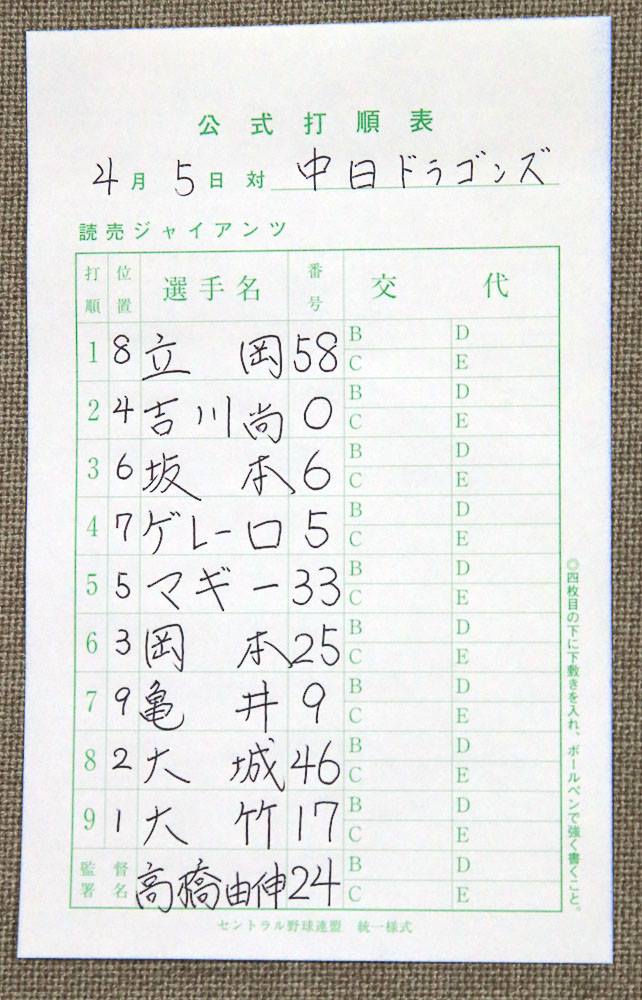 公式打順表
4月5日 対 中日ドラゴンズ
読売ジャイアンツ
打順 位置 選手名 番号 交代
1 8 立岡 58 B D
C E
2 4 吉川尚 0 B D
C E
3 6 坂本 6 B D
C E
4 7 ゲレーロ 5 B D
C E
5 5 マギー 33 B D
C E
6 3 岡本 25 B D
C E
7 9 亀井 9 B D
C E
8 2 大城 46 B D
C E
9 1 大竹 17 B D
C E
監督署名 高橋由伸 24 B D
C E
セントラル野球連盟 統一様式
◎四枚目の下に下敷きを入れ、ボールペンで強く書くこと。